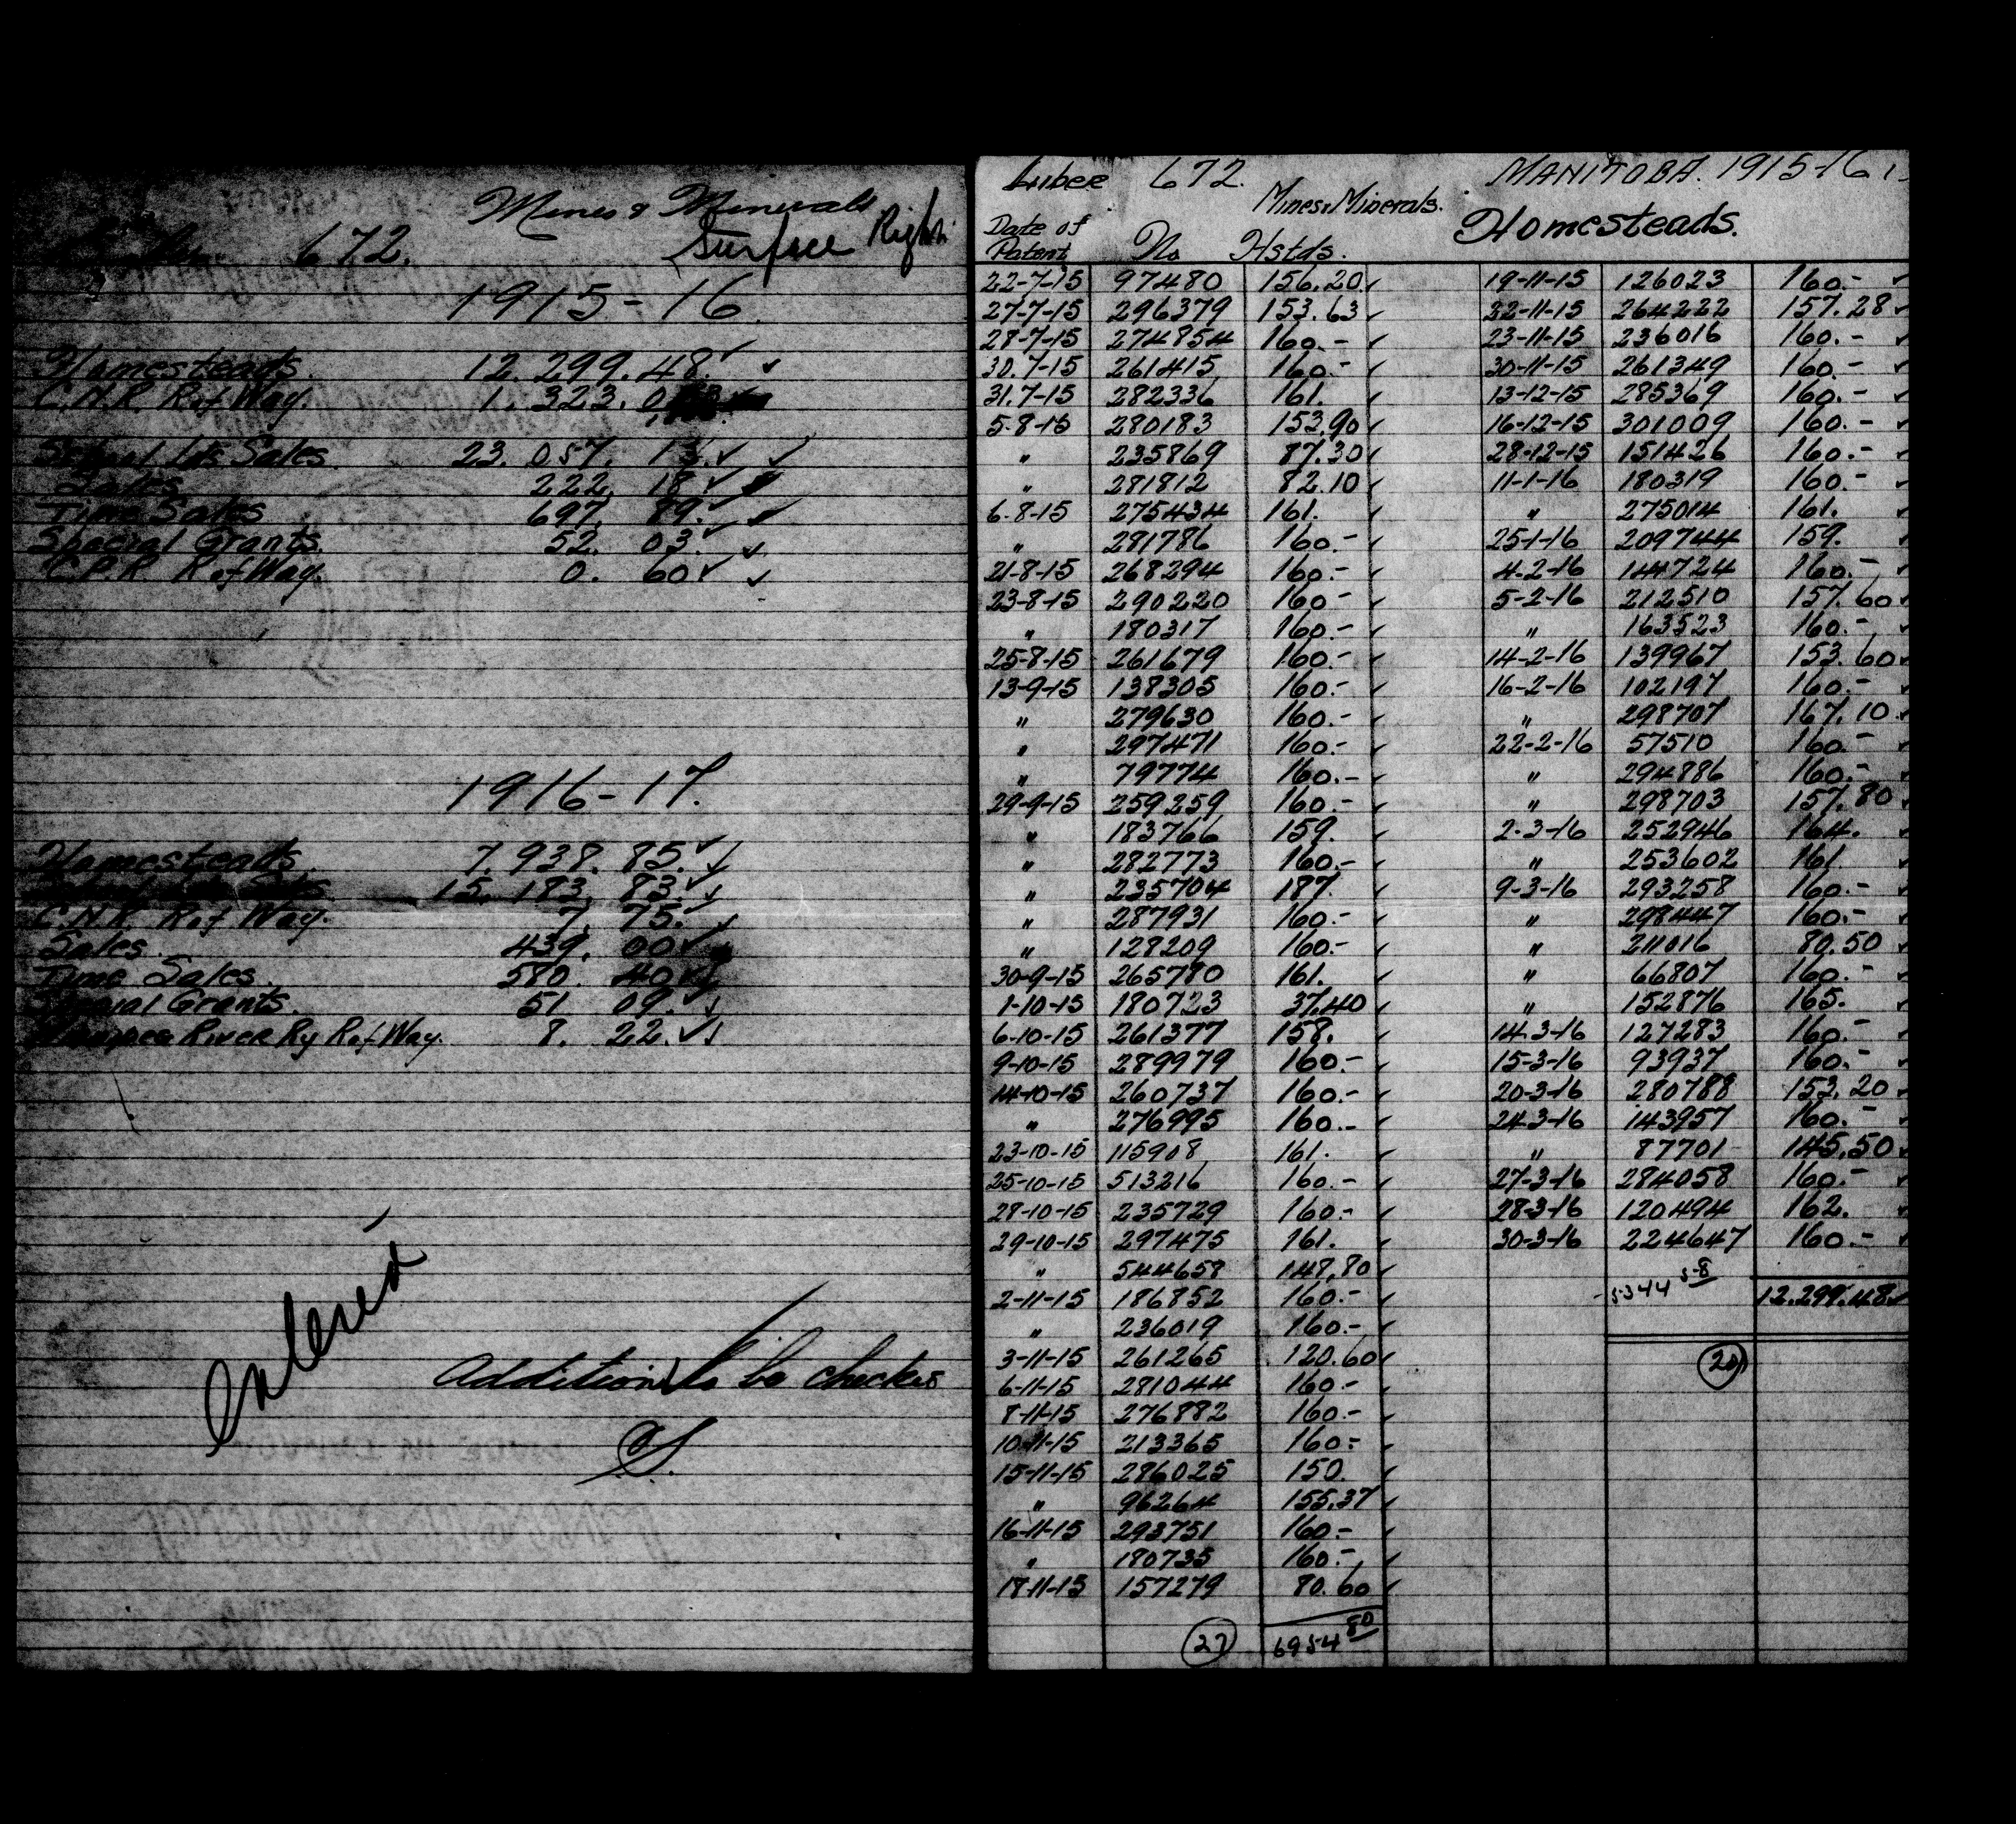 Mines & Minerals
Surface Right
Liber 672.
1915-16
Homesteads. 12.299.48.
C.N.R. R.of Way. 1.323.0
School Lds Sales 23.057.13.
Sales 222.18.
Time Sales 697.89.
Special Grants. 52.03.
C.P.R. R.of Way. 0.60
1916-17.
Homesteads. 7.938.85.
15.183.83.
C.N.R. R.of Way. 7.75.
Sales. 439.00
Time Sales. 580.40
Special Grants. 51 09.
River Ry R.of Way. 8.22.
Entered
Additions to be checked
S.
Liber 672. MANITOBA. 1915-16
Mines & Minerals. Homesteads.
Date of Patent No Hstds.
22-7-15 97480 156.20 19-11-15 126023 160.-
27-7-15 296379 153.63 22-11-15 264222 157.28
28-7-15 274854 160.- 23-11-15 236016 160.-
30.7-15 261415 160.- 30-11-15 261349 160.-
31.7-15 282336 161. 13-12-15 285369 160.-
5-8-15 280183 153.90 16-12-15 301009 160.-
" 235869 87.30 28-12-15 151426 160.-
" 281812 82.10 11-1-16 180319 160.-
6-8-15 275434 161. " 275014 161.
" 281786 160.- 25-1-16 209744 159.
21-8-15 268294 160.- 4-2-16 144724 160.-
23-8-15 290220 160- 5-2-16 212510 157.60
" 180317 160.- " 163523 160.-
25-8-15 261679 160.- 14-2-16 139967 153.60
13-9-15 138305 160.- 16-2-16 102197 160.-
" 279630 160.- " 298707 167.10
" 297471 160.- 22-2-16 57510 160.-
" 79774 160.- " 294886 160.-
29-9-15 259259 160.- " 298703 157.80
" 183766 159. 2-3-16 252946 164.
" 282773 160.- " 253602 161
" 235704 187. 9-3-16 293258 160.-
" 287931 160.- " 298447 160.-
" 128209 160.- " 211016 80.50
30-9-15 265780 161. " 66807 160.-
1-10-15 180723 37.40 " 152876 165.
6-10-15 261377 158. 14-3-16 127283 160.-
9-10-15 289979 160.- 15-3-16 93937 160.-
14-10-15 260737 160.- 20-3-16 280788 153.20
" 276995 160.- 24-3-16 143957 160.-
23-10-15 115908 161. " 87701 145.50
25-10-15 513216 160.- 27-3-16 284058 160.-
28-10-15 235729 160.- 28-3-16 120494 162.
29-10-15 297475 161. 30-3-16 224647 160.-
" 544658 148.80
2-11-15 186852 160.- 5344 58 12.299.48
" 236019 160.-
3-11-15 261265 120.60 20
6-11-15 281044 160.-
8-11-15 276882 160.-
10-11-15 213365 160.-
15-11-15 286025 150.
" 96264 155.37
16-11-15 293751 160.-
" 180735 160.-
18-11-15 157279 80.60
27 6954 80